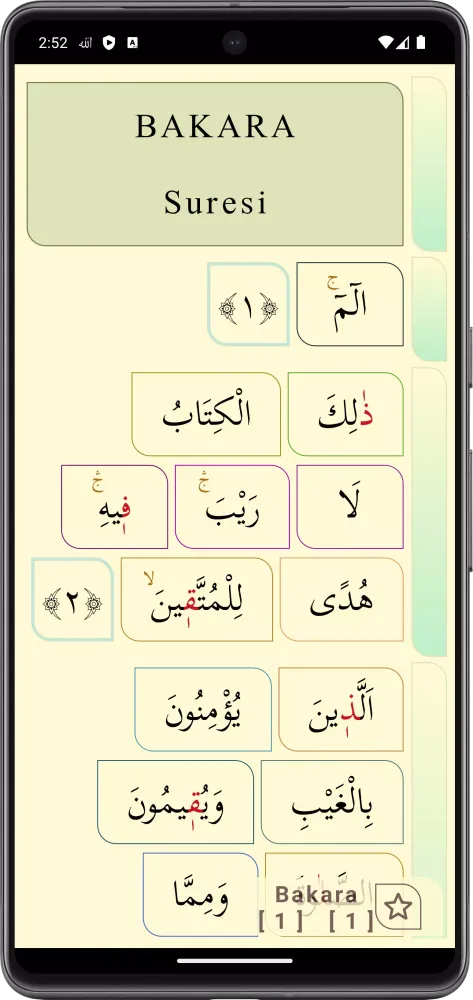 2:52
BAKARA
Suresi
الٓمٓ ۚ ﴿١﴾
ذٰلِكَ الْكِتَابُ
لَا رَيْبَ ۛ فٖيهِ ۛ
هُدًى لِلْمُتَّقٖينَ ۙ ﴿٢﴾
اَلَّذٖينَ يُؤْمِنُونَ
بِالْغَيْبِ وَيُقٖيمُونَ
وَمِمَّا
Bakara
[ 1 ] [ 1 ]